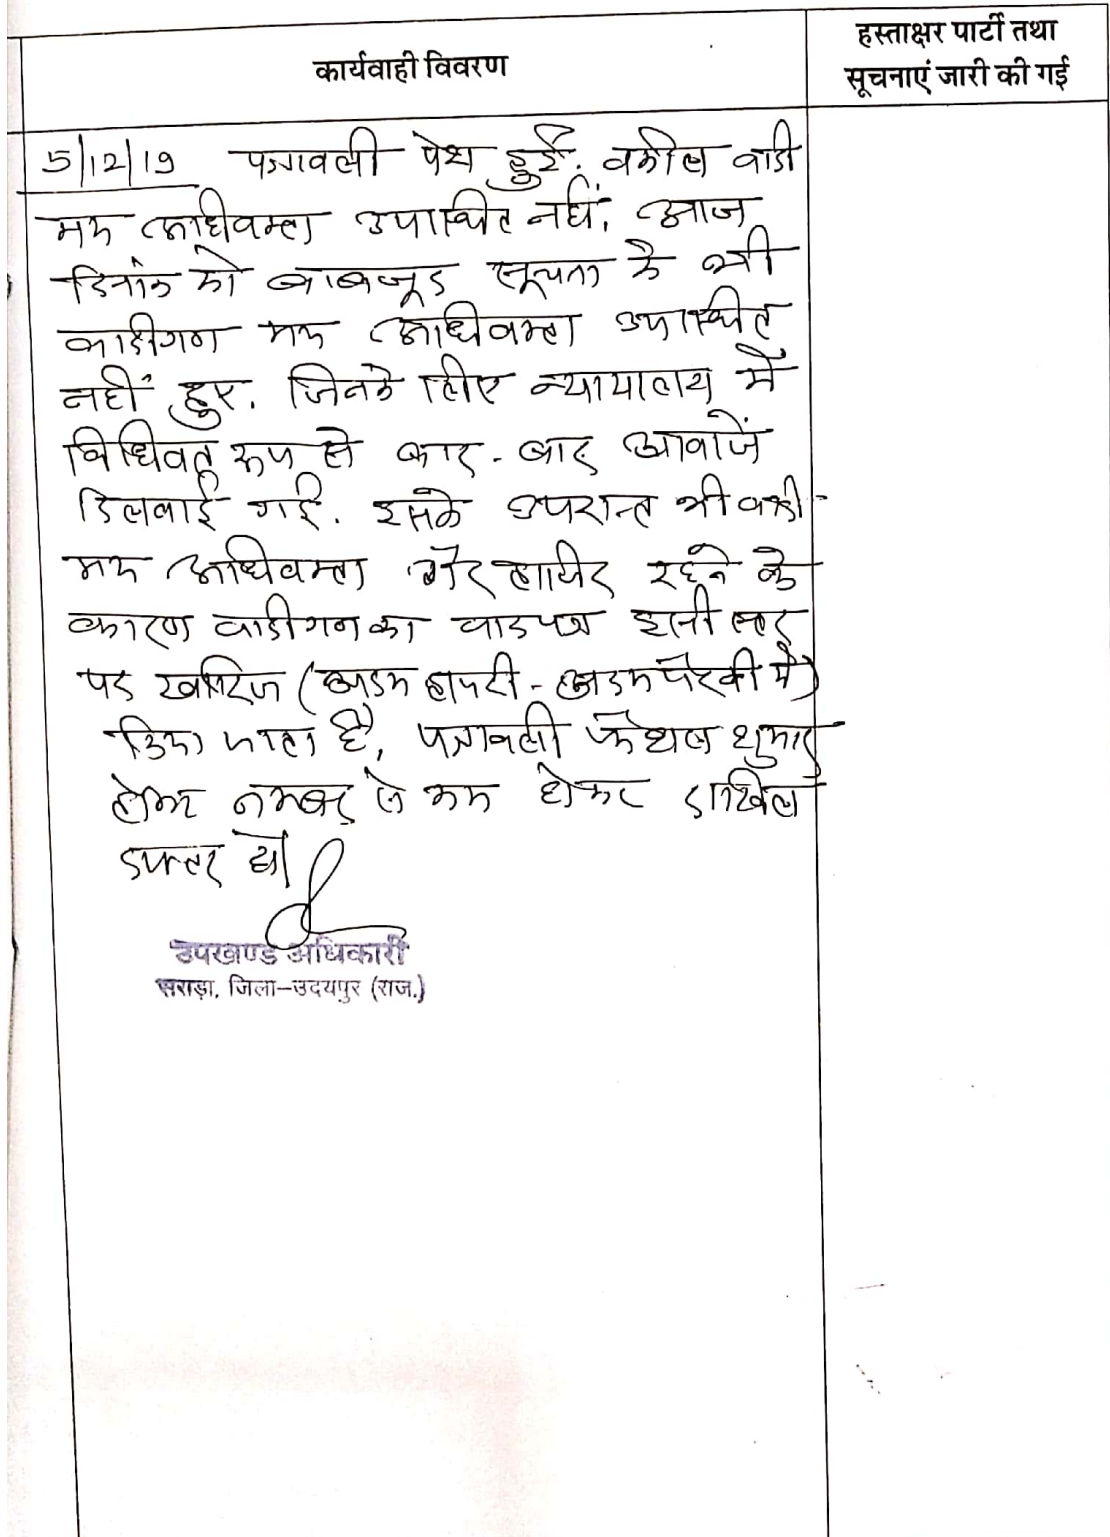 कार्यवाही विवरण
हस्ताक्षर पार्टी तथा
सूचनाएं जारी की गई
5/12/19 पत्रावली पेश हुई. वकील वादी
मय अधिवक्ता उपस्थित नहीं. आज
दिनांक को बाबजूद सूचना के भी
वादीगण मय अधिवक्ता उपस्थित
नहीं हुए. जिनके लिए न्यायालय में
विधिवत् रूप से बार-बार आवाजें
दिलवाई गई. इसके उपरान्त भी वादी
मय अधिवक्ता गैर हाजिर रहने के
कारण वादीगण का वादपत्र इसी स्तर
पर खारिज (अदम हाजरी - अदम पैरवी में)
किया जाता है, पत्रावली फैसल शुमार
होकर नम्बर से कम होकर दाखिल
दफ्तर हो।
उपखण्ड अधिकारी
सराड़ा, जिला-उदयपुर (राज.)